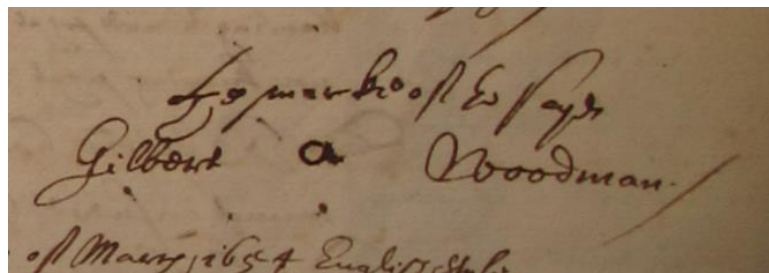 The marke of the sayde
Gilbert a Woodman
of March, 1654 English Style